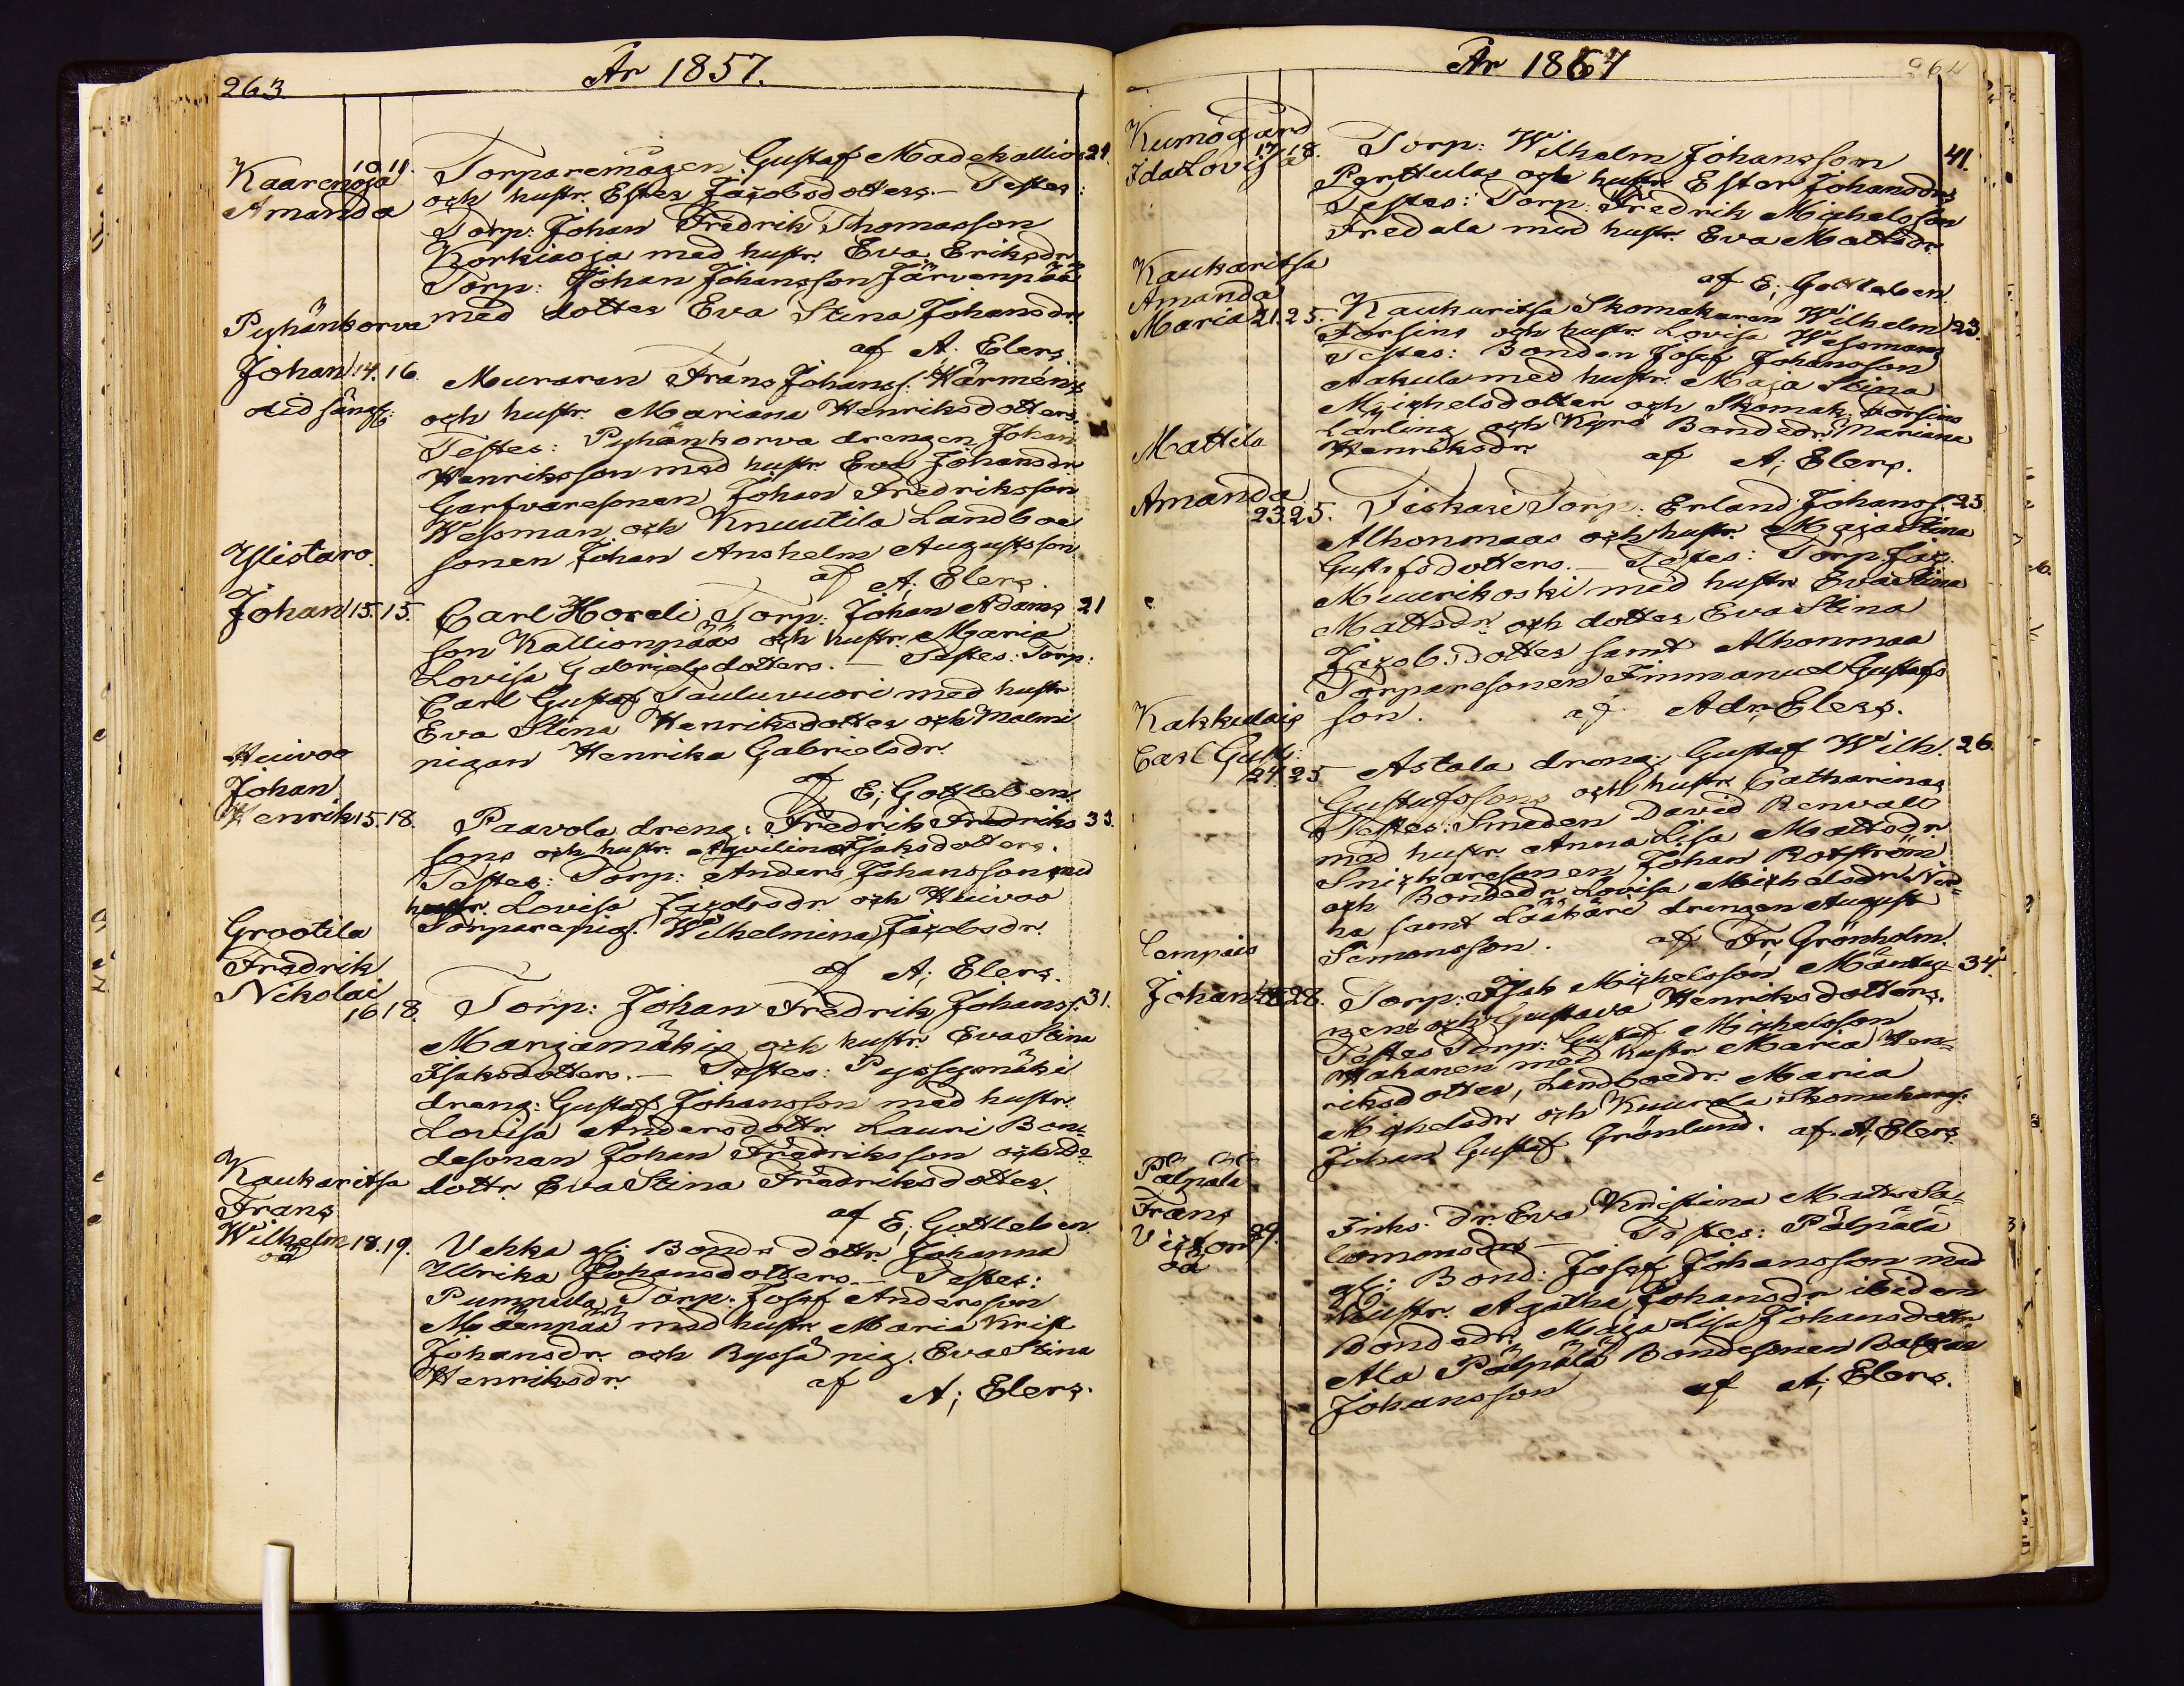 263
År 1857.
Kaarenoja 10 11.
Amanda
Torparemågen Gustaf Madekallios 24.
och hustr. Ester Jacobsdotters. — Testes:
Torp: Johan Fredrik Thomasson
Korkiaoja med hustr. Eva Eriksdr
Torp: Johan Johansson Järvenpää
med dotter Eva Stina Johansdr.
af A. Elers.
Pyhänkorva
Johan 14. 16.
Muraren Frans Johanss. Härméns
och hustr. Mariana Henriksdotters.
Testes: Pyhänkorva drengen Johan
Henriksson med hustr Eva Johansdr
Garfvaresonen Johan Fredriksson
Wessman och Knuutila Landboe
sonen Johan Anshelm Augustsson
af A; Elers.
Ylistaro.
Johan 15. 15.
Carl Hordi Torp: Johan Adams 21
son Kallionpääs och hustr. Maria
Lovisa Gabrielsdotters. — Testes: Torp:
Carl Gustaf Tauluvuori med hustr
Eva Stina Henriksdotter och Malmi
pigan Henrika Gabrielsdr.
af E; Gottleben.
Huivoo
Johan
Henrik 15. 18.
Paavola dreng: Fredrik Fredriks 33.
sons och hustr. Aqvilina Isaksdotters.
Testes: Torp: Anders Johansson med
hustr. Lovisa Jacobsdr. och Huivoo
Torparepig. Wilhelmina Jacobsdr.
af A; Elers.
Grootila
Fredrik
Nikolai
16 18.
Torp: Johan Fredrik Johanss. 31.
Marjamäkis och hustr. Eva Stina
Isaksdotters. — Testes: Pyssymäki
dreng: Gustaf Johansson med hustr.
Lovisa Andersdottr Lauri Bon-
desonen Johan Fredriksson och d:o
dottr Eva Stina Fredriksdotter.
af E; Gottleben
Kaukaritsa
Frans
Wilhelm 18. 19.
oä
Uhka gl: Bonds dottr. Johanna
Ulrika Johansdotters. — Testes:
Pumpula Torp. Josef Andersson
Mäenpää med hustr Maria Krist
Johansdr. och Ryssä pig. Eva Stina
Henriksdr. af A; Elers.
År 1857
264
Kumogård
Ida Lovisa 17. 18.
Torp: Wilhelm Johansson 41.
Perttulas och hustr Ester Johansdrs
Testes: Torp. Fredrik Michelsson
Fredala med hustr. Eva Mattsdr.
af E; Gottleben
Kaukaritsa
Amanda
Maria 21. 25.
Kaukaritsa Skomakaren Wilhelm 23.
Forsins och hustr. Lovisa Wessmans
Testes: Bonden Josef Johansson
Aakula med hustr. Maja Stina
Michelsdotter och Skomak: Forsins
Lärling och Kyrö Bondedr Mariana
Henriksdr af A; Elers.
Mattila
Amanda
23. 25.
Tiskari Torp: Erland Johanss. 23
Alhonmaas och hustr. Maja Stina
Gustafsdotters. — Testes: Torp Jac.
Muurikoski med hustr Eva Stina
Mattsdr och dotter Eva Stina
Jacobsdotter samt Alhonmaa
Torparesonen Immanuel Gustafs
son. af Adr. Elers.
Kakkulais
Carl Gust:
24. 25
Astala dreng: Gustaf Wilh. 26.
Gustafssons och hustr Catharinas
Testes: Smeden David Renvall
med hustr Anna Lisa Mattsdr
Snickaresonen Johan Rotström
och Bondedr Lovisa Michelsdr
samt Lääkäri drengen August
Simonsson. af Fr; Grönholm.
Lempais
Johan 28.
Torp: Isak Michelsson 34.
och Gustava Henriksdotters.
Testes Torp: Gustaf Michelsson
Hakanen med hustr Maria Hen-
riksdotter, Landboedr. Maria
Michelsdr och Kuurola Skomakareg.
Johan Gustaf Grönlund. af A; Elers
Pälpälä
Frans
Victor 29.
oä
Inhs. dr. Eva Kristina Matts Sa-
lomonsdrs — Testes: Pälpälä
gl: Bond: Josef Johansson med
Hustr. Agatha Johansdr ibidem
Bondedr Maja Lisa Johansdottr
Ala Pälpälä Bondesonen
Johansson af A; Elers.